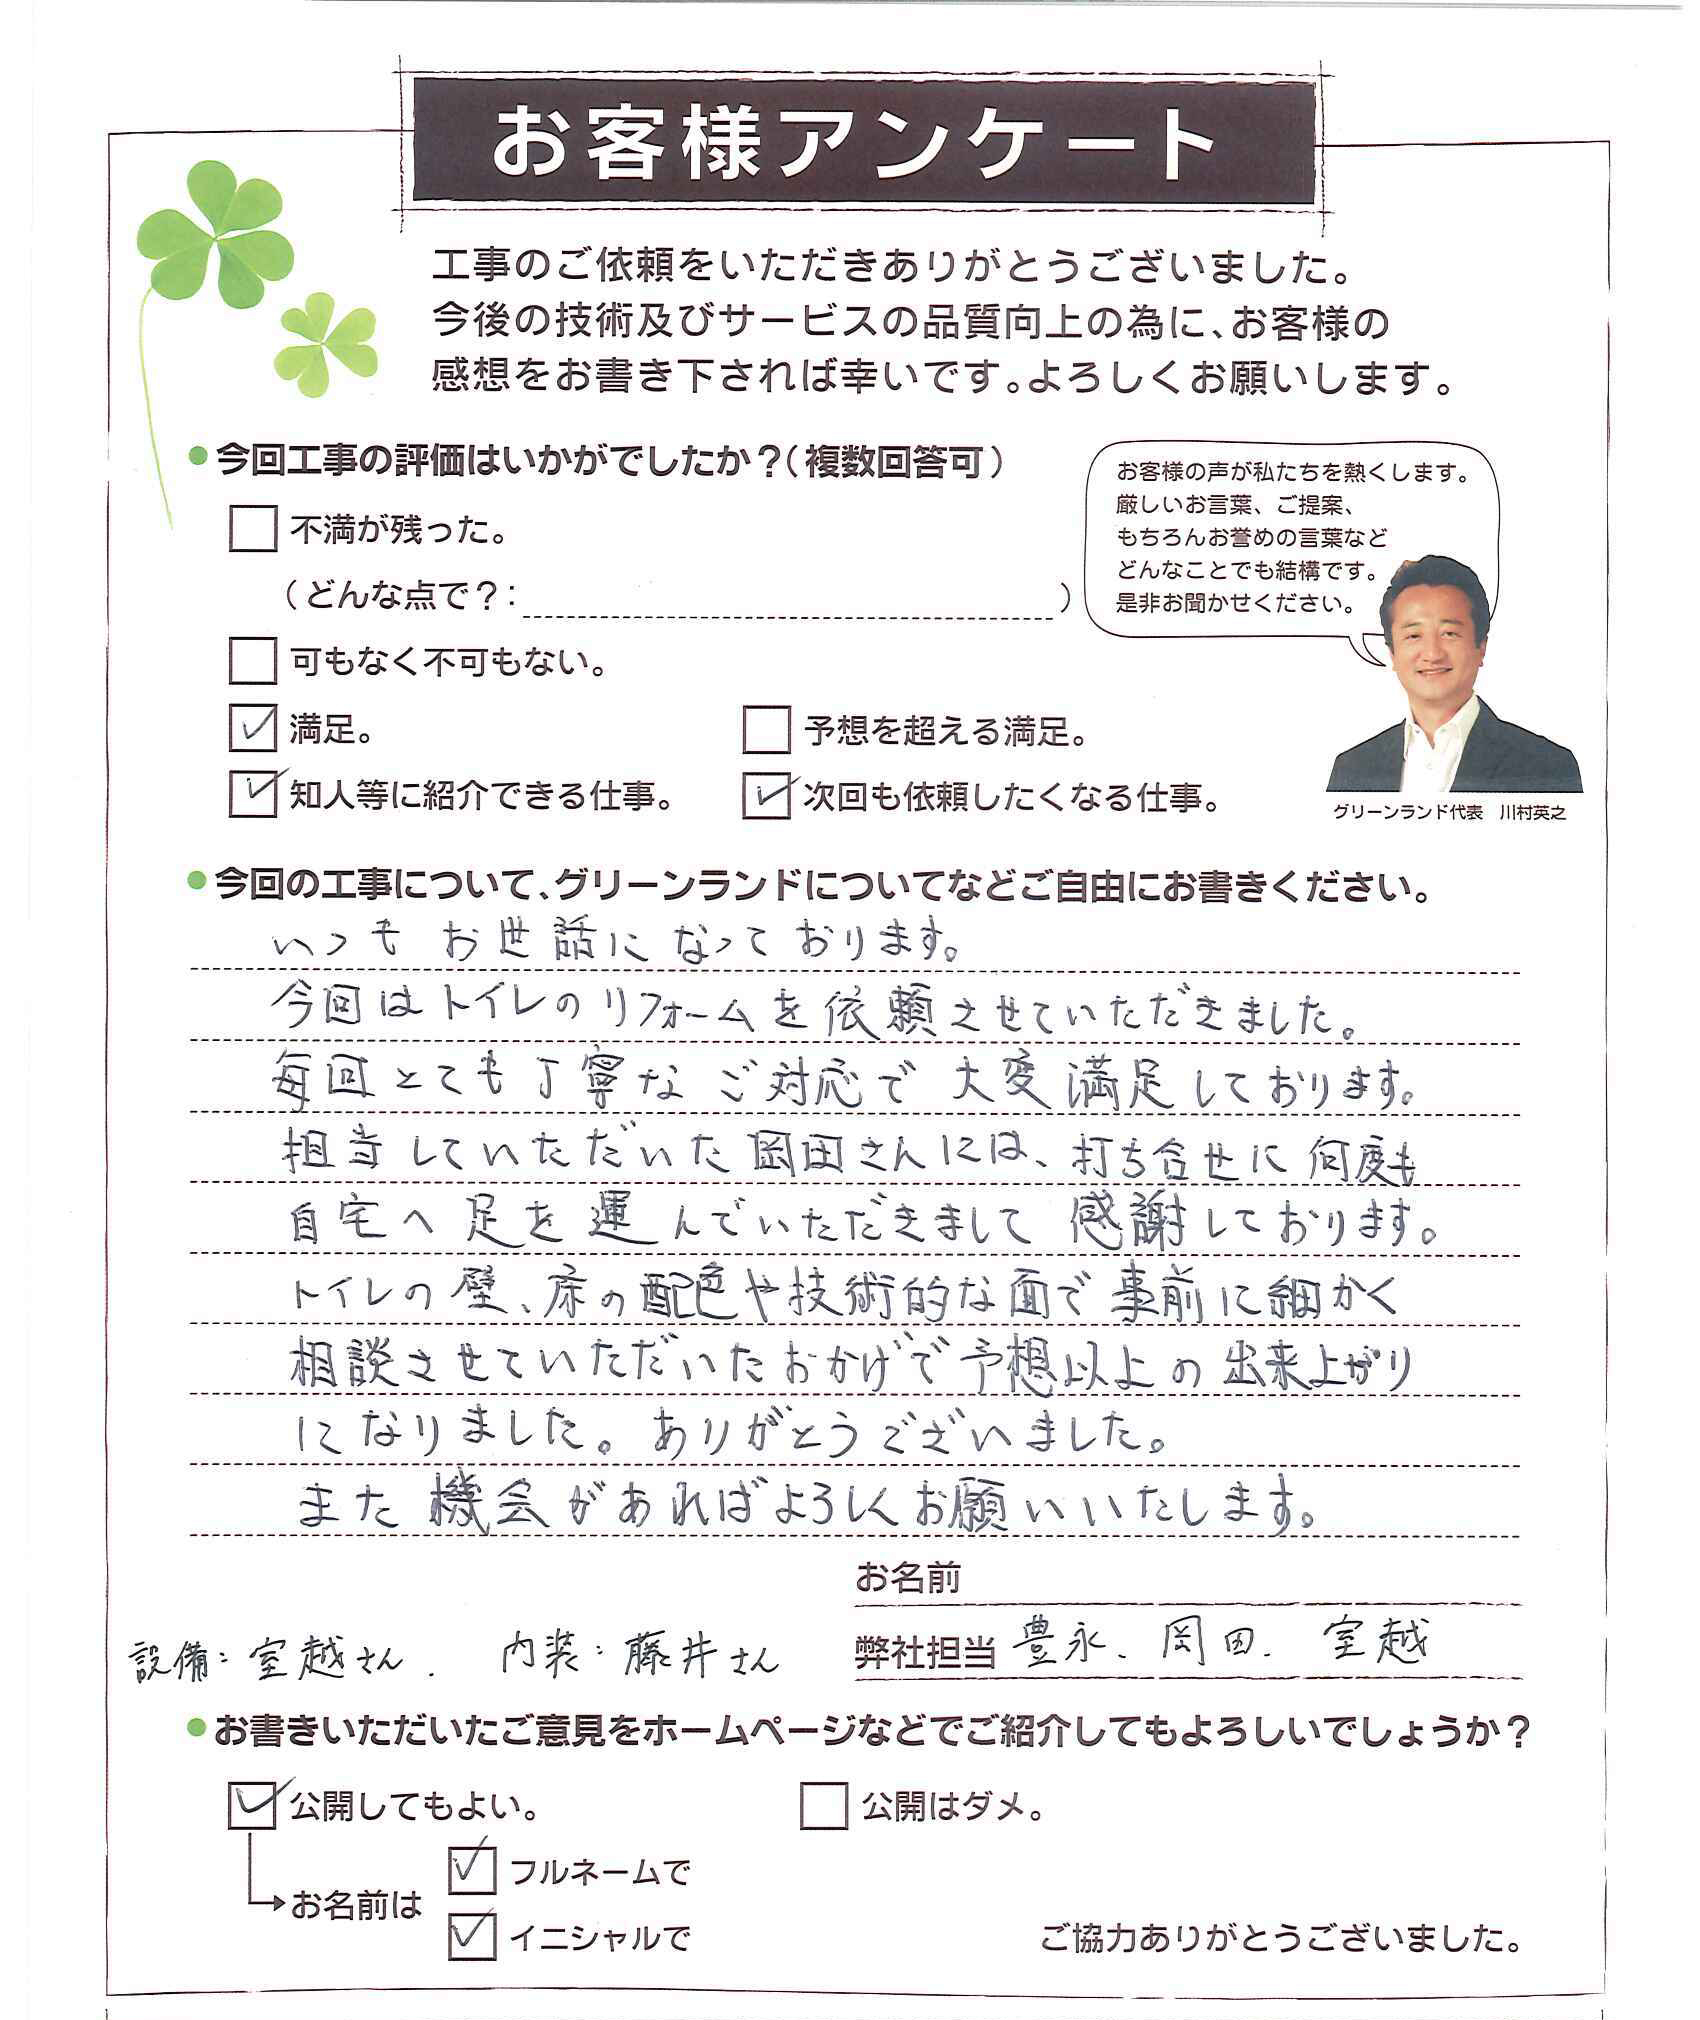 お客様アンケート
工事のご依頼をいただきありがとうございました。
今後の技術及びサービスの品質向上の為に、お客様の
感想をお書き下されば幸いです。よろしくお願いします。
●今回工事の評価はいかがでしたか？(複数回答可)
不満が残った。
(どんな点で？: )
可もなく不可もない。
満足。
予想を超える満足。
知人等に紹介できる仕事。
次回も依頼したくなる仕事。
お客様の声が私たちを熱くします。
厳しいお言葉、ご提案、
もちろんお誉めの言葉など
どんなことでも結構です。
是非お聞かせください。
グリーンランド代表 川村英之
●今回の工事について、グリーンランドについてなどご自由にお書きください。
いつも お世話に なって おります。
今回は トイレの リフォームを 依頼させていただきました。
毎回 とても 丁寧な ご対応で 大変 満足しております。
担当していただいた 岡田さんには、打ち合せに 何度も
自宅へ 足を 運んでいただきまして 感謝しております。
トイレの 壁、床の 配色や 技術的な面で 事前に細かく
相談させていただいたおかげで 予想以上の 出来上がり
になりました。ありがとうございました。
また 機会があればよろしくお願いいたします。
お名前
設備：室越さん. 内装：藤井さん
弊社担当 豊永、岡田. 室越
●お書きいただいたご意見をホームページなどでご紹介してもよろしいでしょうか？
公開してもよい。
公開はダメ。
お名前は
フルネームで
イニシャルで
ご協力ありがとうございました。